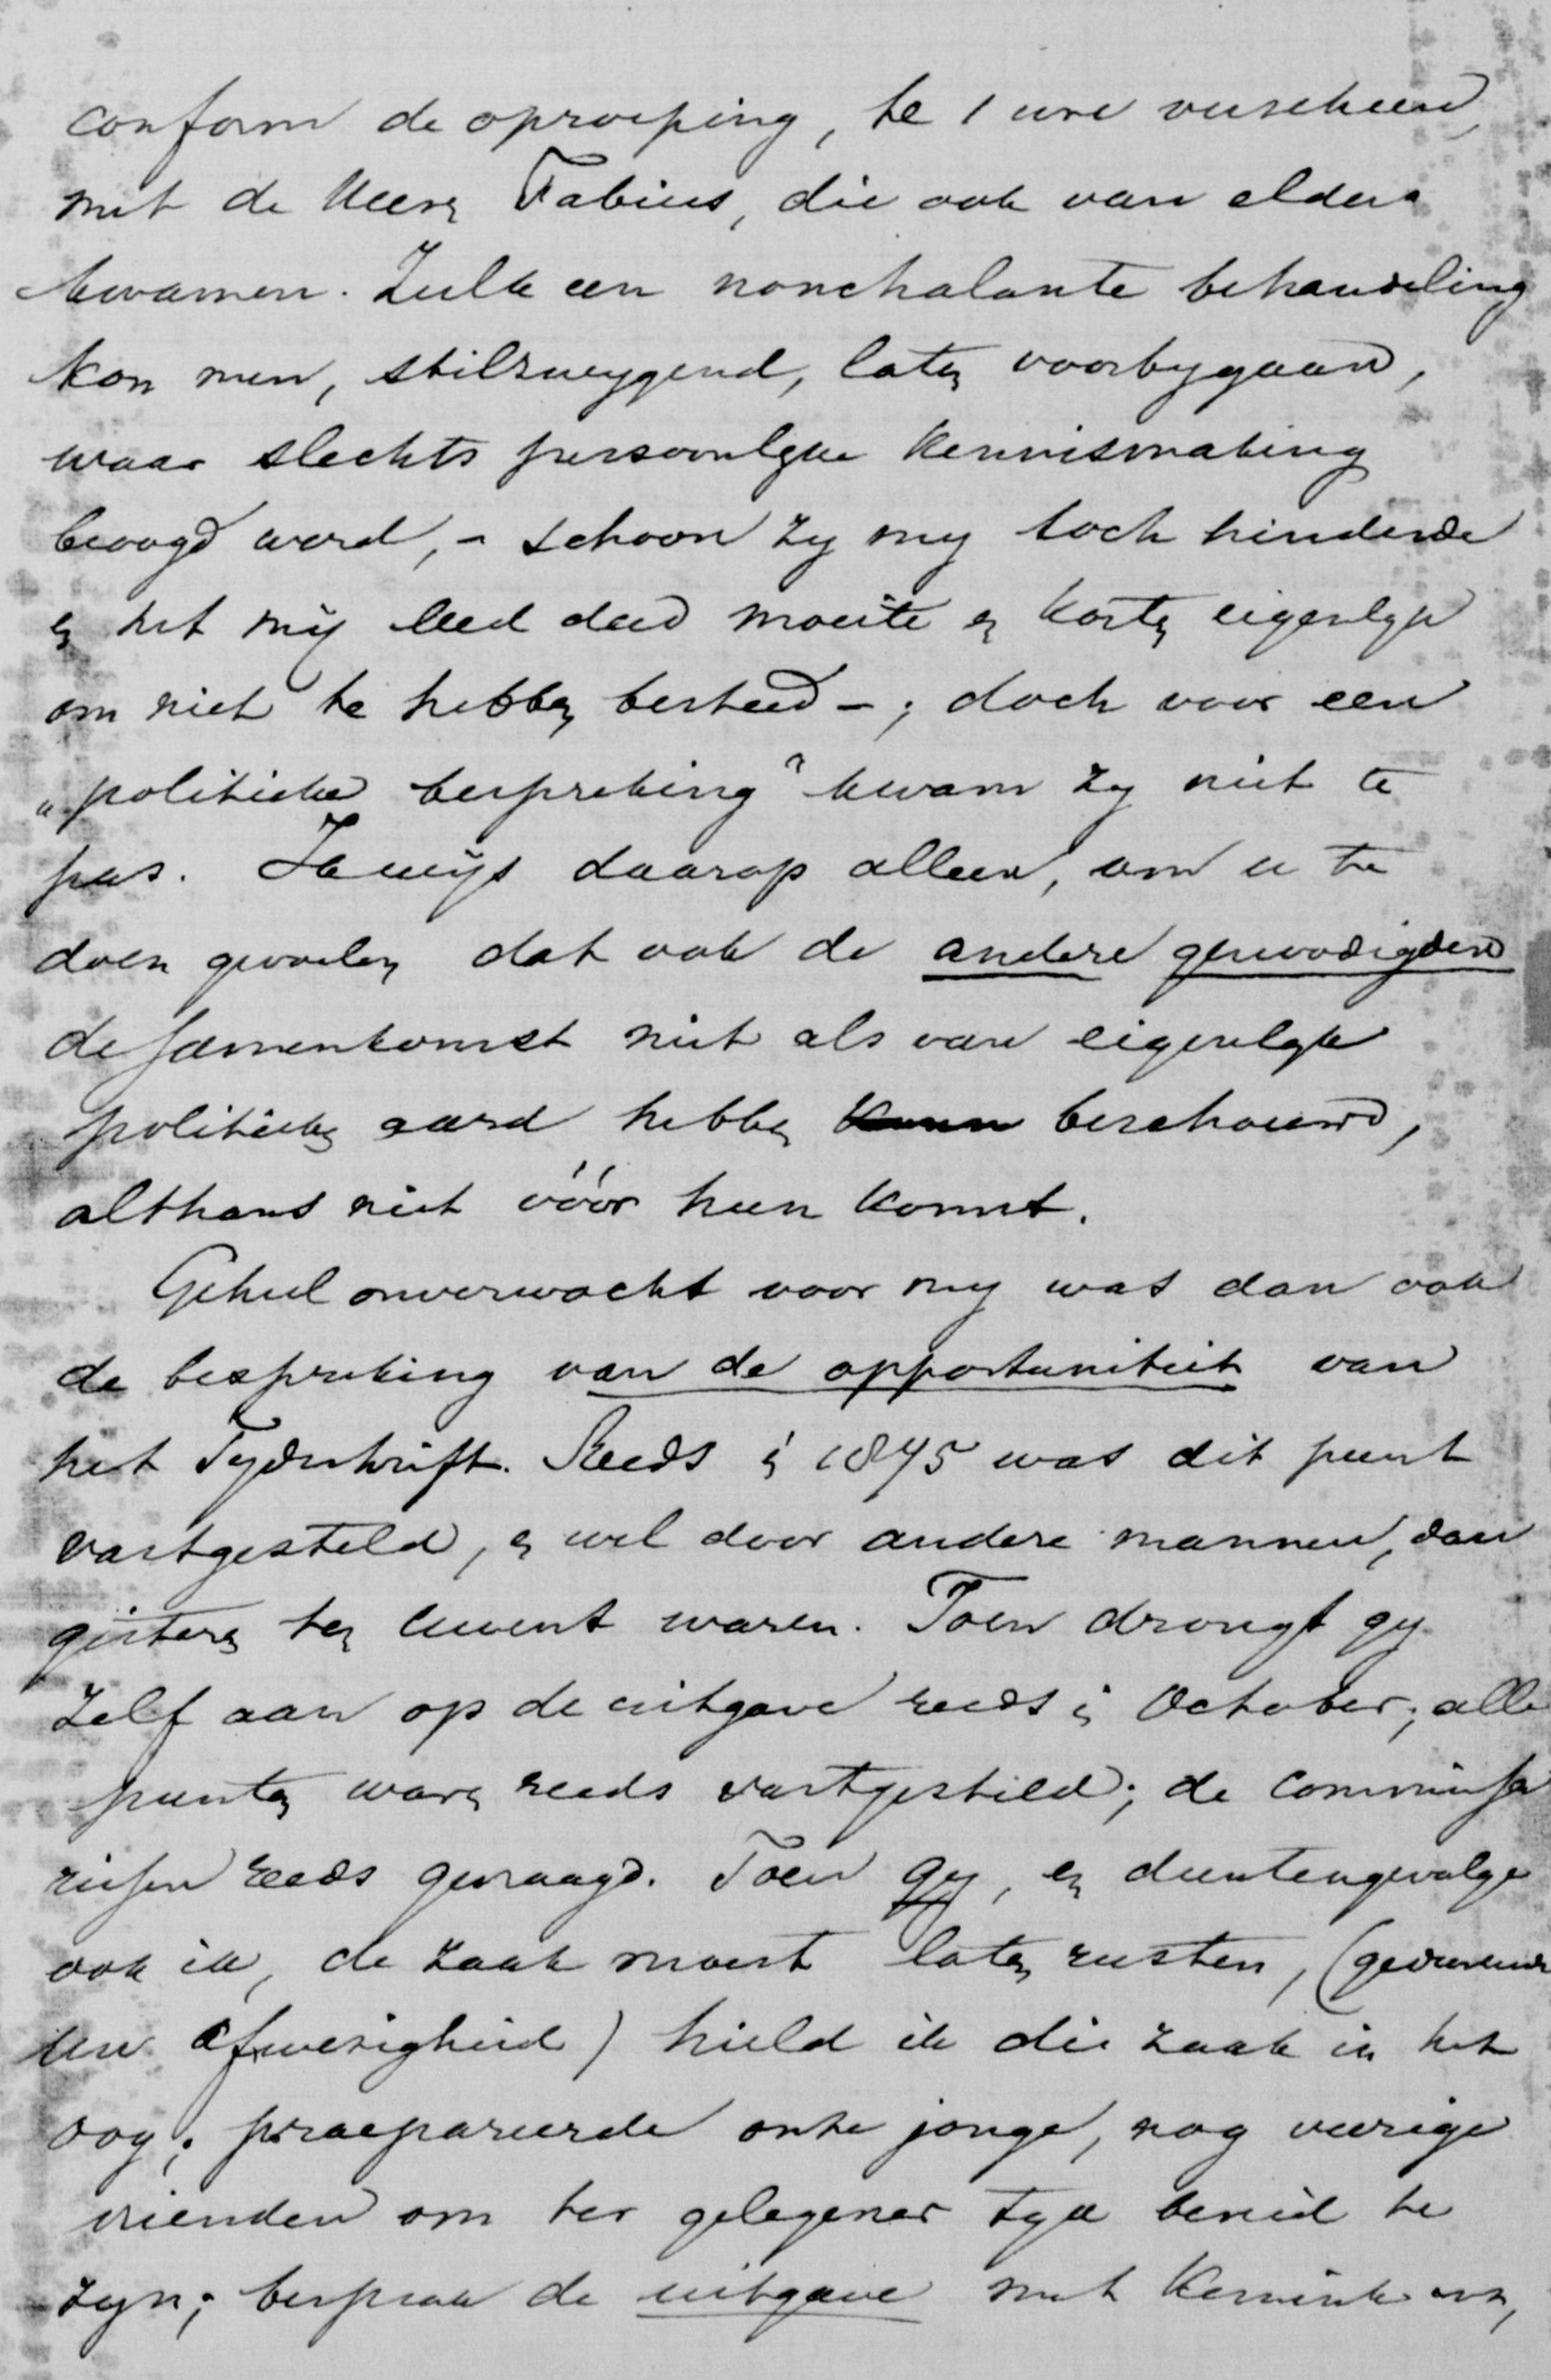 conform de oproeping, te 1 ure verscheen,
met de Heeren Fabius, die ook van elders
kwamen. Zulk een nonchalante behandeling
kon men, stilzwygend, laten voorbygaan,
waar slechts persoonlyke kennismaking
beoogd werd, – schoon zy my toch hinderde
en het mij leed deed moeite en kosten eigenlyk
om niet te hebben besteed –; doch voor een
„politieke bespreking” kwam zy niet te
pas. Ik wijs daarop alleen, om u te
doen gevoelen dat ook de andere genoodigden
de samenkomst niet als van eigenlyk
politieken aard hebben beschouwd,
althans niet vóór hun komst.
Geheel onverwacht voor my was dan ook
de bespreking van de opportuniteit van
het Tydschrift. Reeds in 1875 was dit punt
vastgesteld, en wel door andere mannen, dan
gisteren ten Uwent waren. Toen drongt gy
zelf aan op de uitgave reeds in October; alle
punten waren reeds vastgesteld; de commissa
rissen reeds gevraagd. Toen gy, en dientengevolge
ook ik, de zaak moest laten rusten, (gedurende
Uw afwezigheid) hield ik die zaak in het
oog; praepareerde onze jonge, nog vurige
vrienden om ter gelegener tyd bereid te
zyn; besprak de uitgave met Kemink